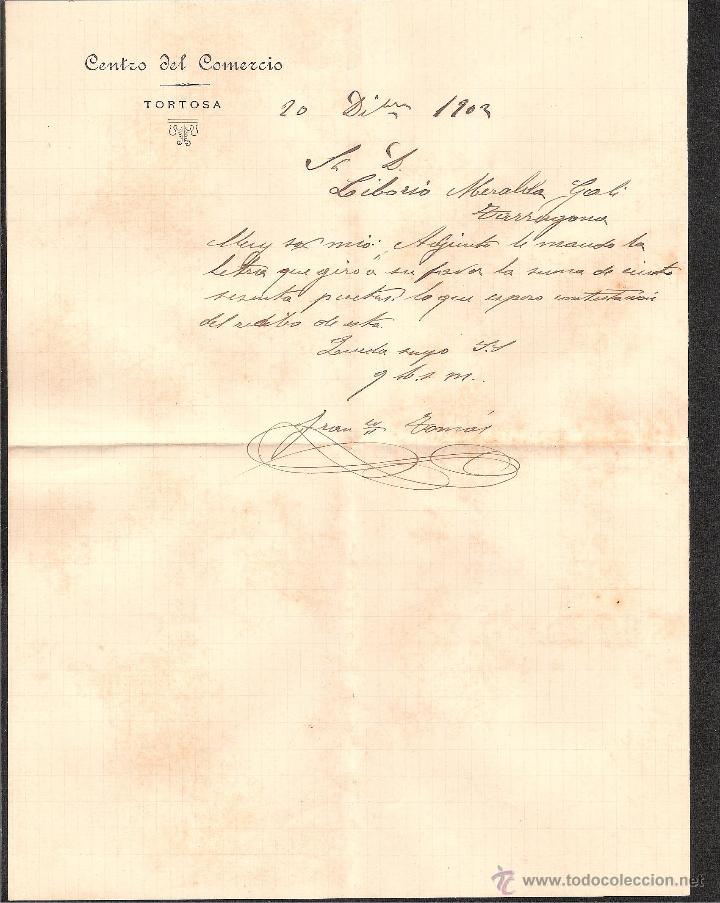 Centro del Comercio
TORTOSA
20 Dibre 1902
Sr. D.
Liborio Meralda Gali
Tarragona
Muy sor mio: Adjunto le mando la
letra que giró a su favor la suma de ciento
sesenta pesetas lo que espero contestación
del recibo de esta.
Queda suyo S.S
q b. s. m..
Franco Tomás
www.todocoleccion.net